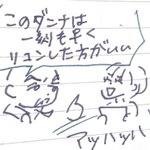 このダンナは
一刻も早く
リコンした方がいい
アッハッハ